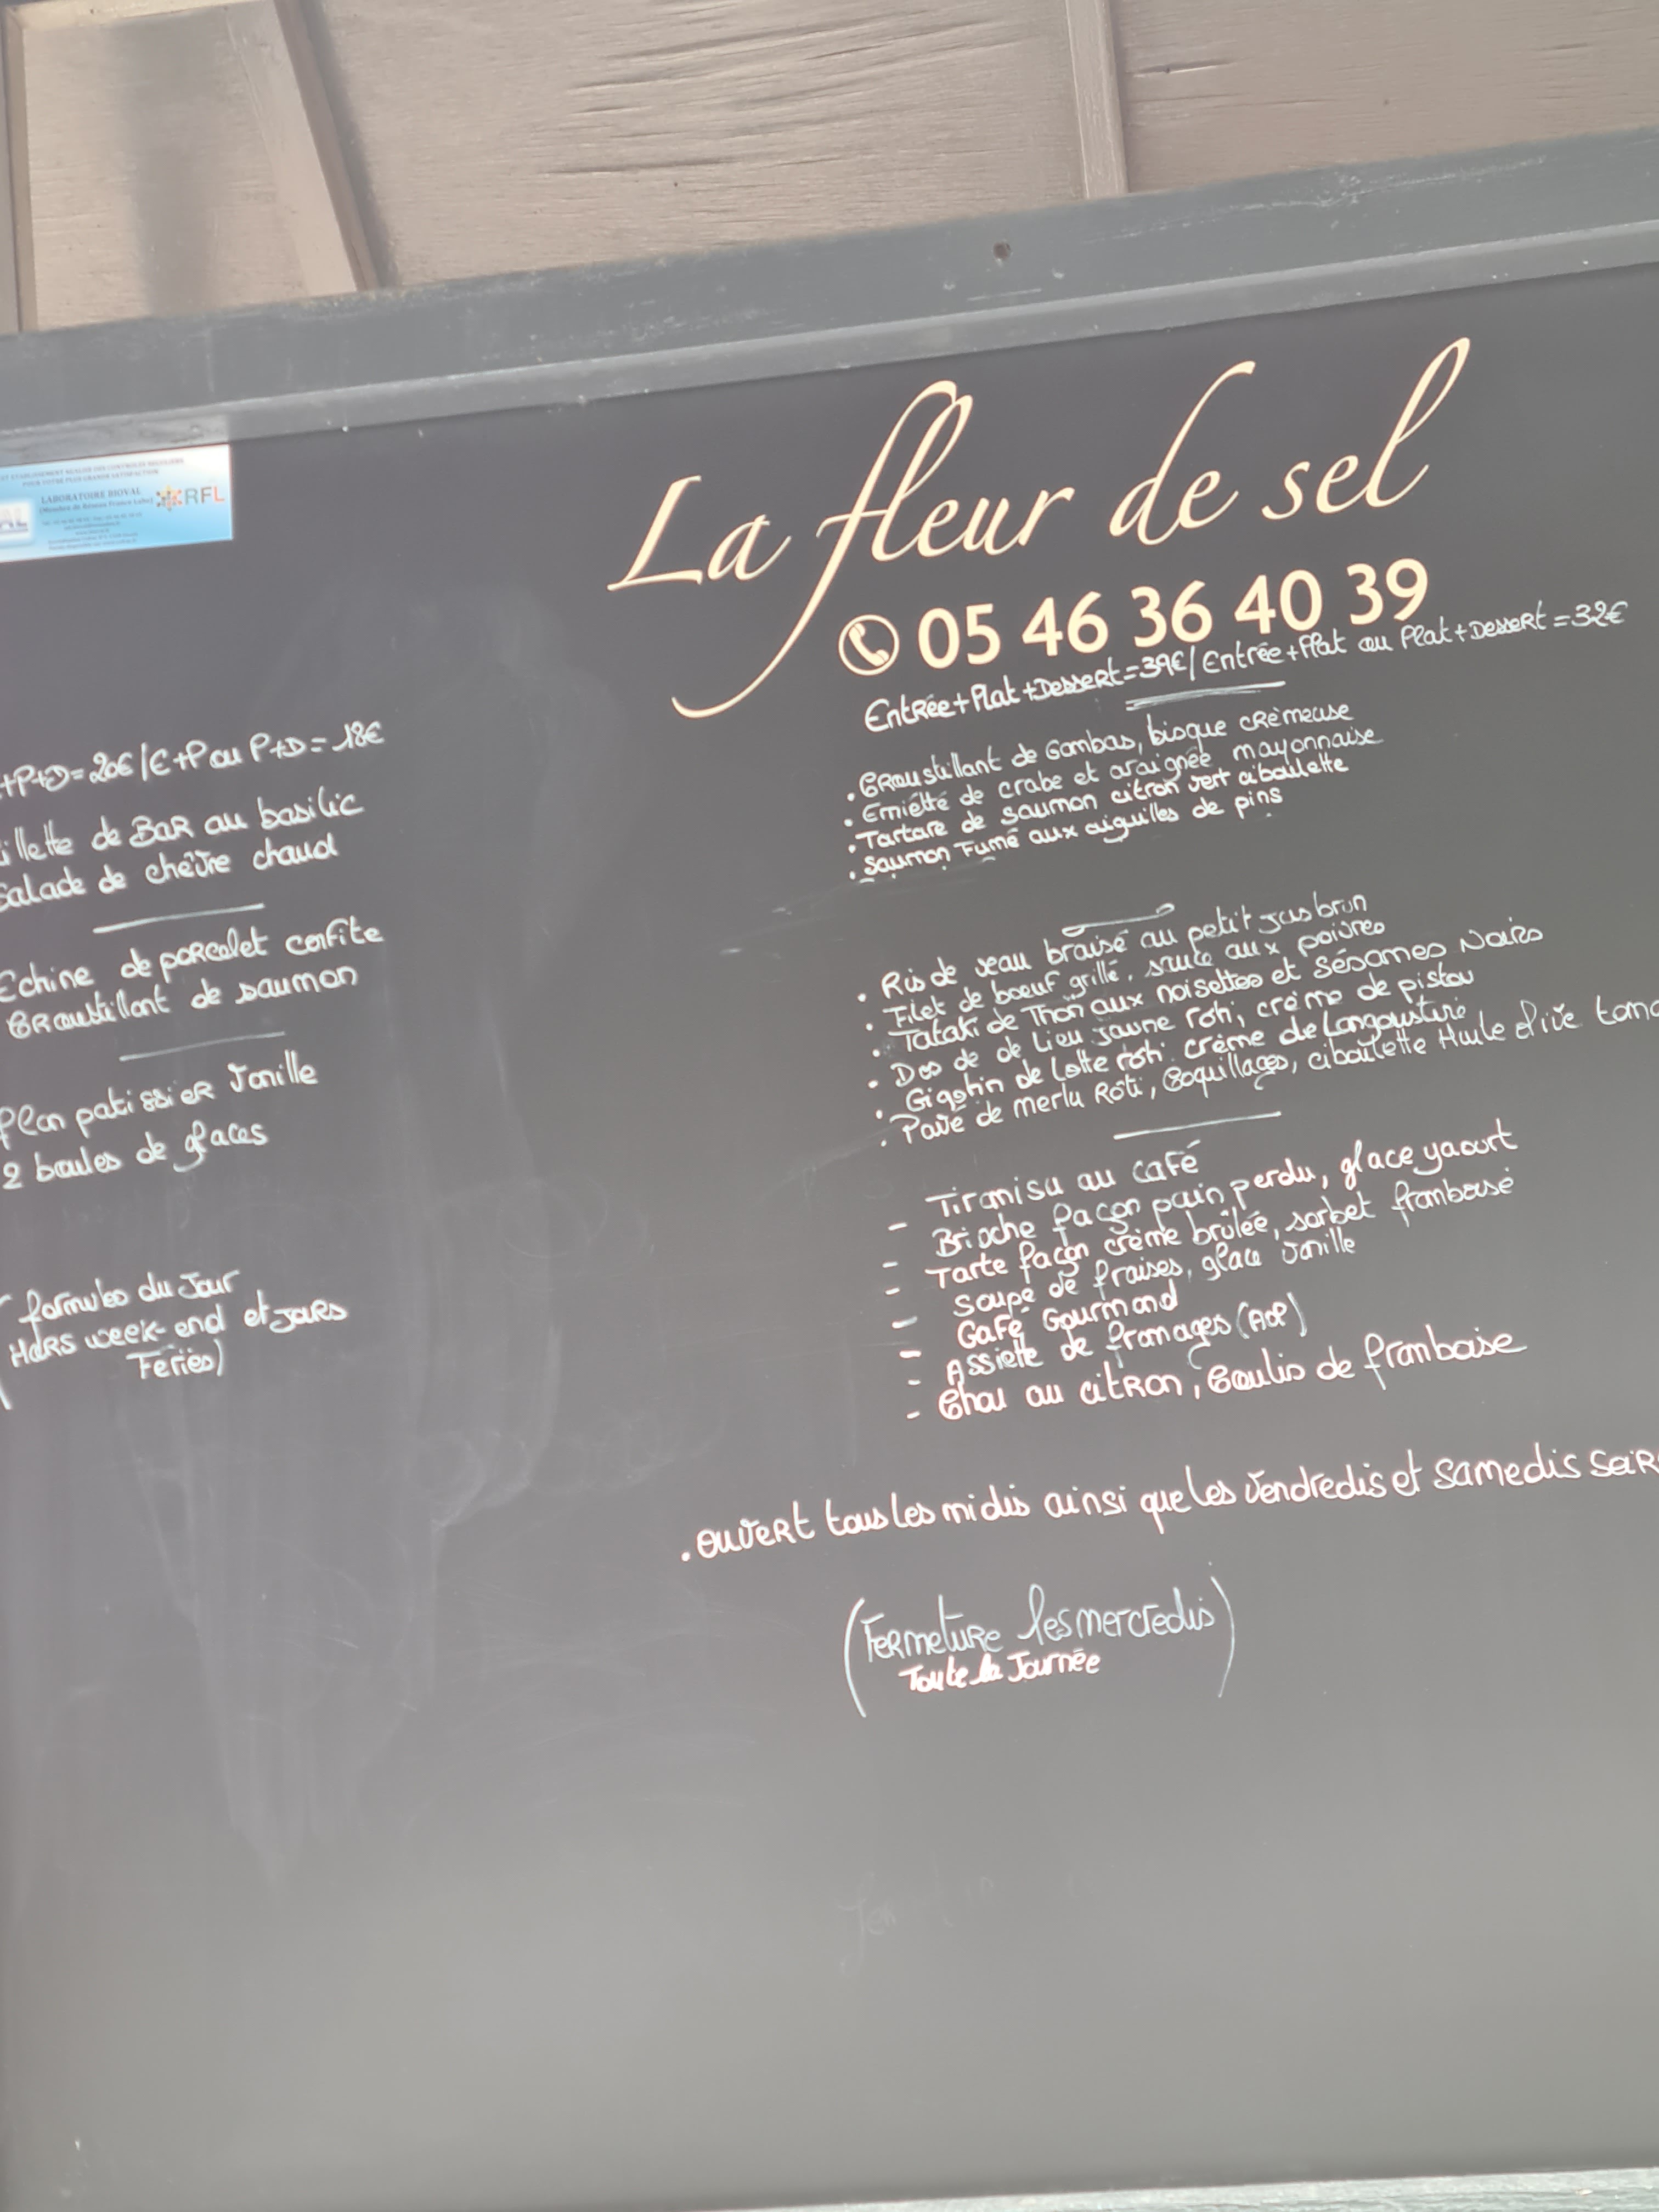 LABORATOIRE BIOVAL
RFL
AL
La fleur de sel
05 46 36 40 39
+P+D=20€/E+P ou P+D=18€
illette de Bar au basilic
Salade de chèvre chaud
Echine de porcelet confite
Croustillant de saumon
flan patissier Vanille
2 boules de glaces
(formules du Jour
Hors week-end et jours
Feriés)
Entrée+Plat+Dessert=39€/Entrée+Plat ou Plat+Dessert=32€
. Croustillant de Gambas, bisque crèmeuse
. Emiétté de crabe et araignée mayonnaise
. Tartare de saumon citron vert ciboulette
. Saumon Fumé aux aiguilles de pins
. Ris de veau braisé au petit jus brun
. Filet de boeuf grillé, sauce aux poivres
. Tataki de Thon aux noisettes et sésames Noirs
. Dos de de Lieu jaune roti, crème de pistou
. Gigotin de Lotte roti crème de Langoustine
. Pavé de merlu Rôti, Coquillages, ciboulette Huile olive toma
- Tiramisu au café
- Brioche façon pain perdu, glace yaourt
- Tarte façon crème brûlée, sorbet framboise
- Soupe de fraises, glace vanille
- Café Gourmand
- Assiette de fromages (AOP)
- Chou au citron, Coulis de framboise
. ouvert tous les midis ainsi que les Vendredis et Samedis Soir
(Fermeture les mercredis)
Toute la Journée